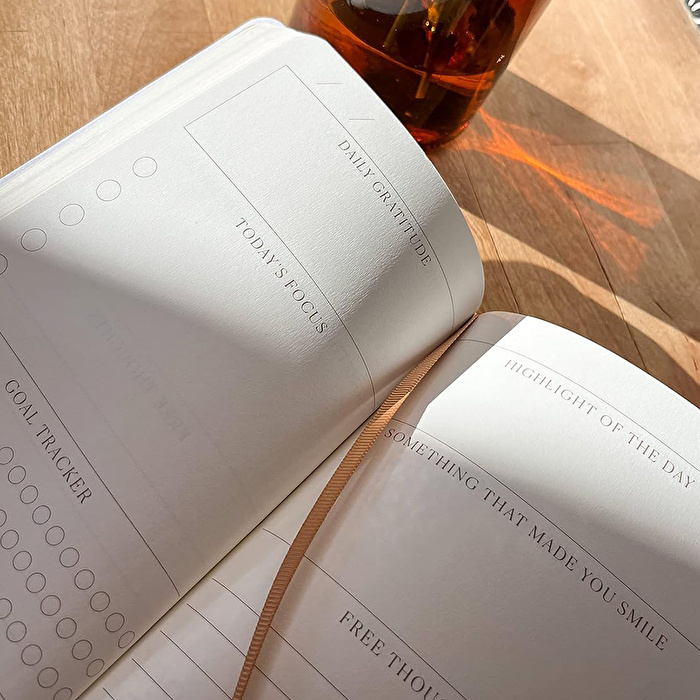 DAILY GRATITUDE
TODAY'S FOCUS
GOAL TRACKER
HIGHLIGHT OF THE DAY
SOMETHING THAT MADE YOU SMILE
FREE THOU